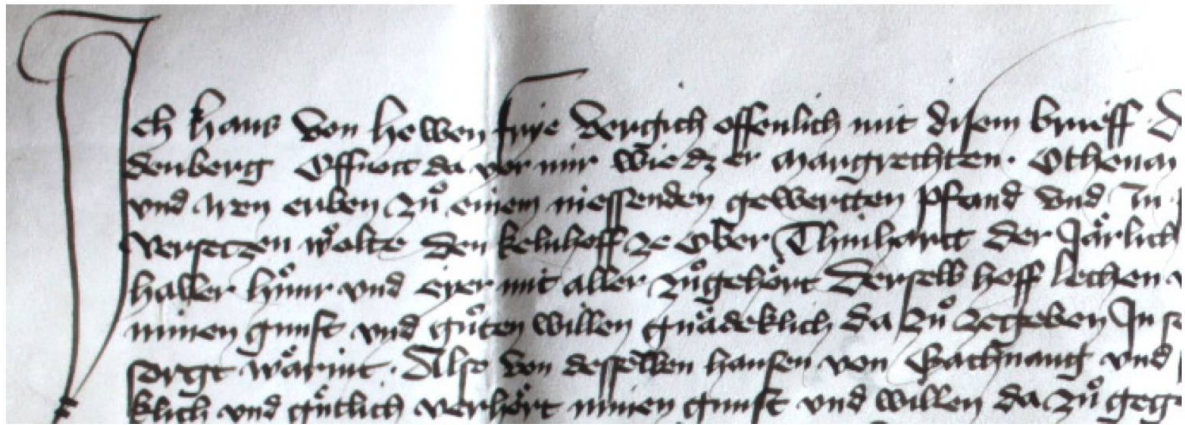 Ich Hans von Hewen frye vergich offenlich mit disem brieff
denberg Offnott da vor mir wie dz er margrechten. Othenan
vnd iren erben zuͦ einem niessenden gewertten pfand vnd In
versetzen woͤlte den kelnhoff ze Ober Thinhartt der Jaͤrlich
haber huͤnr vnd eyer mit aller zuͦgehoͤrt Derselb hoff lechen
minen gunst vnd guͦten willen gnaͤdeklich da zuͦ zegeben In
sorgt waͤrint. Also von desselben hansen von Bachnang vnd
klich vnd guͤtlich verhoͤrt minen gunst vnd willen da zuͦ geg